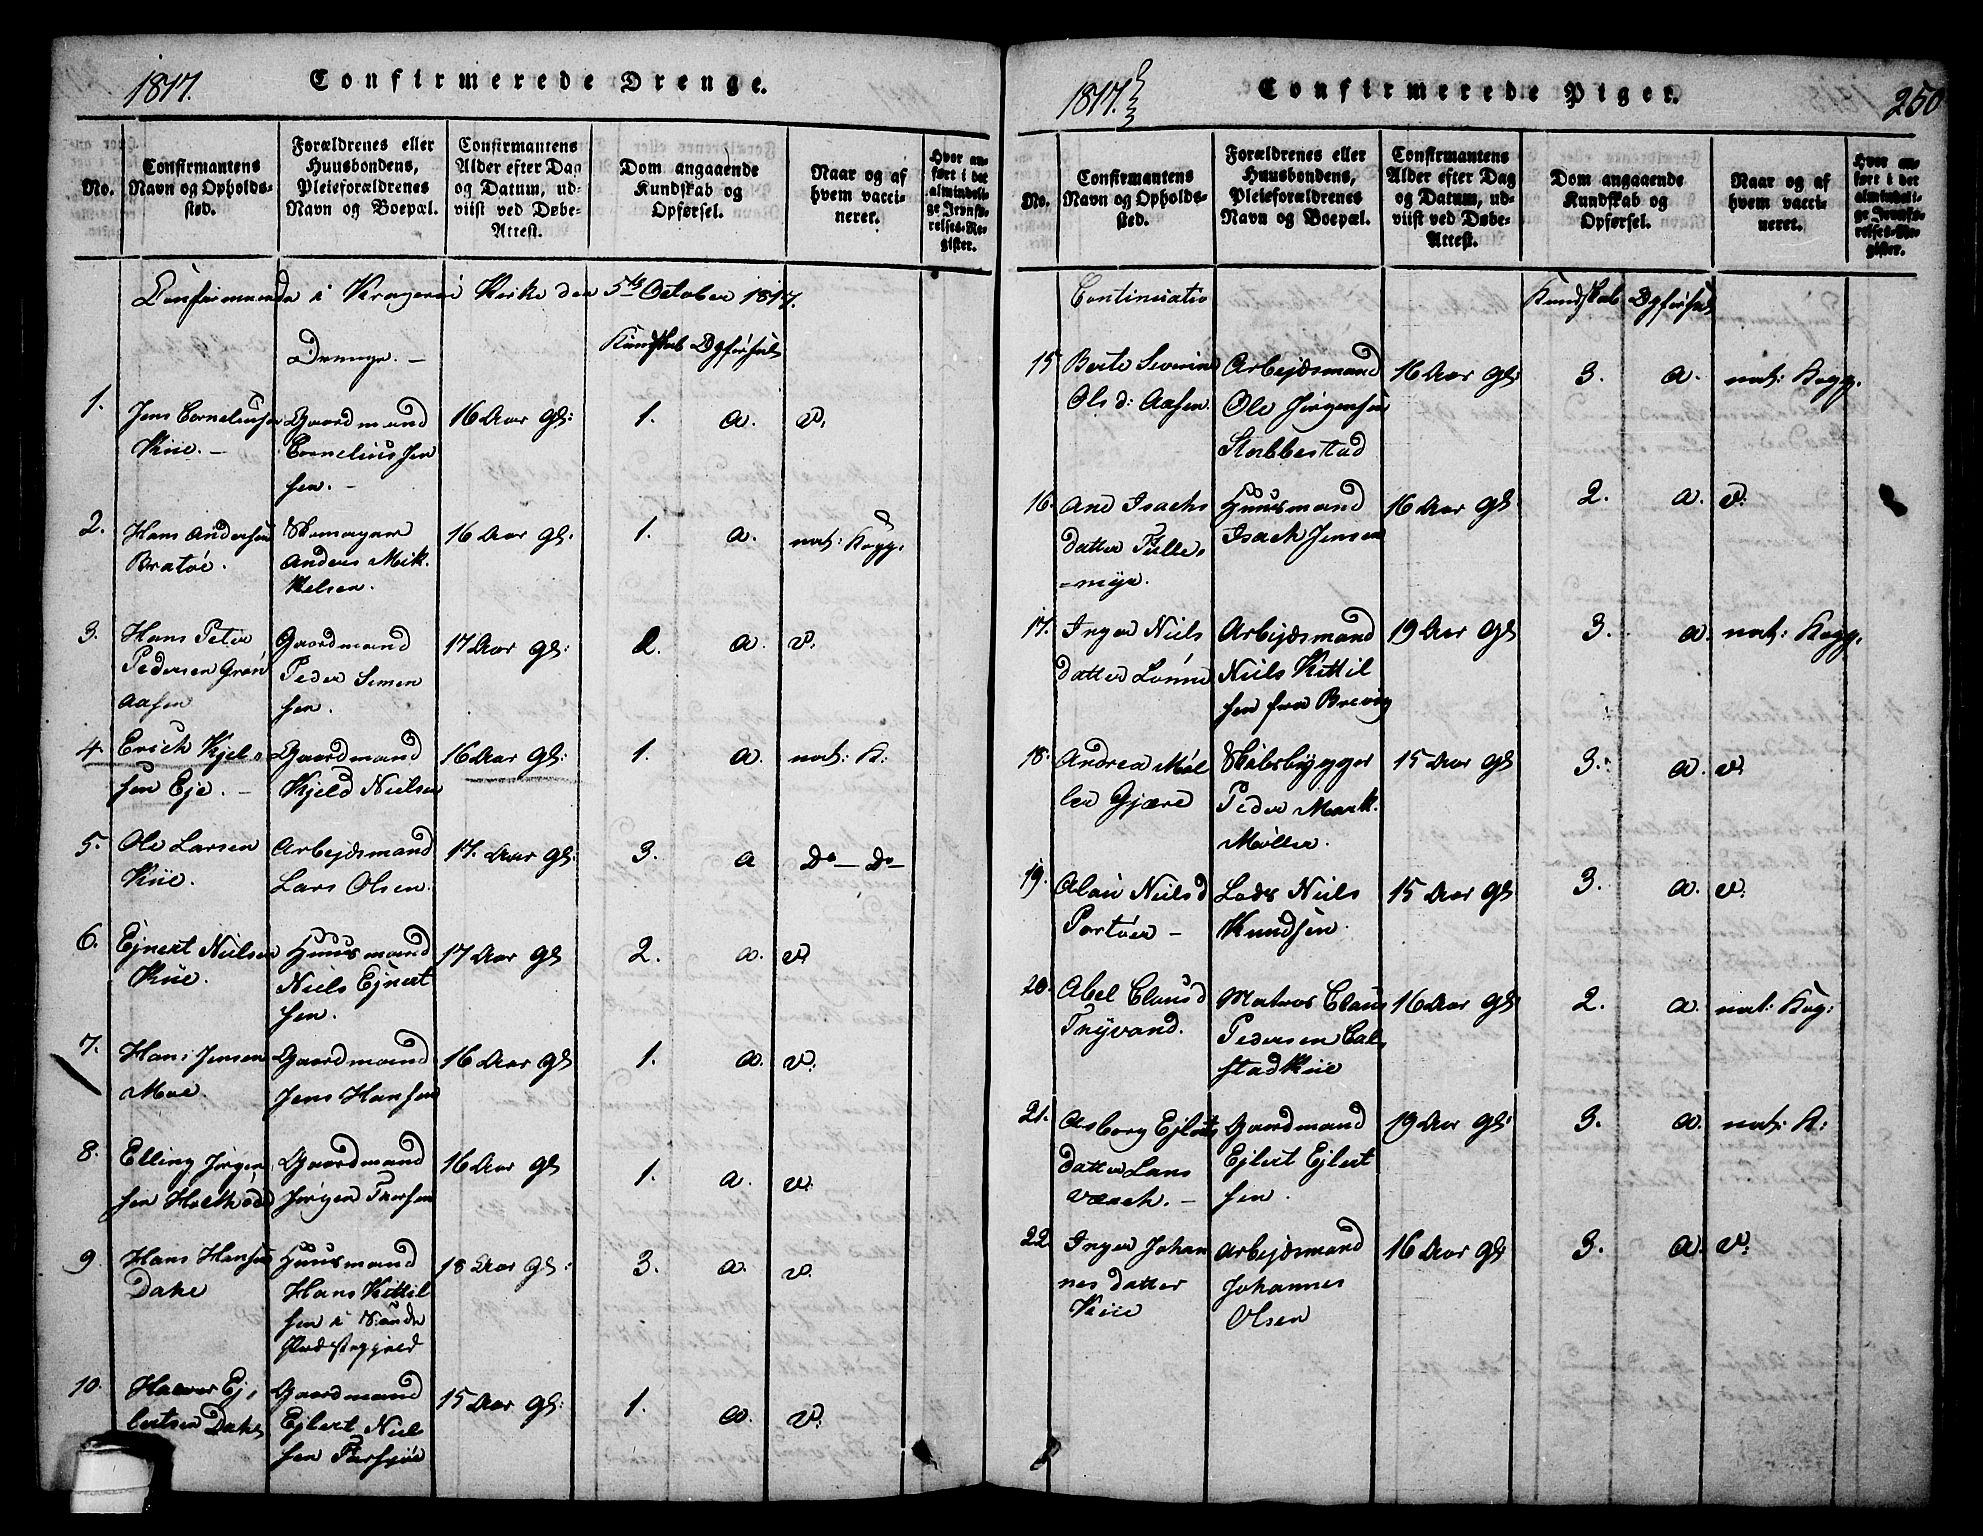 1817.
Confirmerede Drenge.
No.
Confirmantens
Navn og Opholds-
sted.
Forældrenes eller
Huusbondens,
Pleieforældrenes
Navn og Boepæl.
Confirmantens
Alder efter Dag
og Datum, ud-
viist ved Døbe-
Attest.
Dom angaaende
Kundskab og
Opførsel.
Naar og af
hvem vacci-
neret.
Hvor an-
ført i det
almindeli-
ge Jevnfø-
relses-Re-
gister.
Confirmanda i Kragerøe Kirke den 5te October 1817.
Drenge. -
Kundskab Opførsel
1.
Jens Corneliusen
Kiie. -
Gaardmand
Cornelius Jen
sen. -
16 Aar Gl:
1.
a.
v.
2.
Hans Andersen
Bratøe.
Skomager
Anders Mik
kelsen.
16 Aar Gl:
1.
a.
nat: Kopp:
3.
Hans Peter
Pedersen Grøn
aasen
Gaardmand
Peder Simen
sen.
17 Aar Gl:
2.
a.
v.
4.
Erich Kjel-
sen Eje. -
Gaardmand
Kjeld Nielsen
16 Aar Gl:
1.
a.
nat: K:
5.
Ole Larsen
Kiie.
Arbejdsmand
Lars Olsen.
17. Aar Gl:
3.
a
Do - Do -
6.
Ejnert Nielsen
Kiie.
Huusmand
Niels Ejnert
sen.
17 Aar Gl
2.
a.
v.
7.
Hans Jensen
Moe
Gaardmand
Jens Hansen
16 Aar Gl
1.
a.
v.
8.
Elling Jørgen
sen
Gaardmand
Jørgen Thorsen
16 Aar Gl
1.
a.
v.
9.
Hans Hansen
Dahe
Huusmand
Hans Kittil
sen i
Præstegjeld
18 Aar Gl:
3.
a.
v.
10.
Halvor Ej-
lertsen Dahe
Gaardmand
Ejlert Niel
sen
15 Aar Gl:
1.
a.
v.
1817.
Confirmerede Piger.
250
No.
Confirmantens
Navn og Opholds-
sted.
Forældrenes eller
Huusbondens,
Pleieforældrenes
Navn og Boepæl.
Confirmantens
Alder efter Dag
og Datum, ud-
viist ved Døbe-
Attest.
Dom angaaende
Kundskab og
Opførsel.
Naar og af
hvem vacci-
neret.
Hvor an-
ført i det
almindeli-
ge Jevnfø-
relses-Re-
gister.
Continuatio
Kundskab Opførsel
15
Berte Severine
Ols d: Aasen.
Arbejdsmand
Ole Jørgensen
Stabbestad
16 Aar Gl:
3.
a.
nat: Kopp:
16.
Ane Isachs
datter Tulle-
-myr.
Huusmand
Isach Jensen
16 Aar Gl
2.
a.
v.
17.
Inger Niels
datter Lønne
Arbejdsmand
Niels Kittil
sen fra Brevig
19 Aar Gl
3.
a.
nat: Kopp:
18.
Andrea Møl
ler Gjære
Skibsbygger
Peder Mark.
Møller.
15 Aar Gl
3.
a.
v.
19.
Niels d
Portøer -
Lods Niels
Knudsen.
15 Aar Gl
3.
a.
v.
20.
Abel Claus d
Thyvand.
Matros Claus
Pedersen Cal-
stadkiie
16 Aar Gl
2.
a.
nat: Kop:
21.
Asborg Ejlerts
datter Lans
værch. -
Gaardmand
Ejlert Ejlert
sen.
19 Aar Gl:
3.
a.
nat: K:
22
Inger Johan
nes datter
Kiie
Arbejdsmand
Johannes
Olsen
16 Aar Gl:
3.
a.
v.